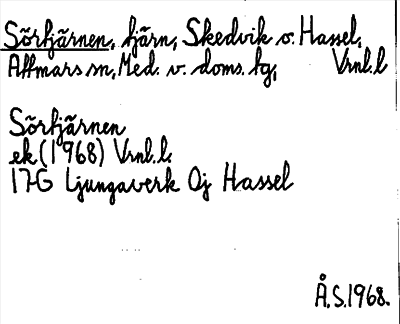 Sörtjärnen, tjärn, Skedvik o. Hassel,
Attmars sn, Med. v. doms. tg, Vrnl.l
Sörtjärnen
ek (1968) Vrnl.l.
17G Ljungaverk 0j Hassel
Å.S.1968.